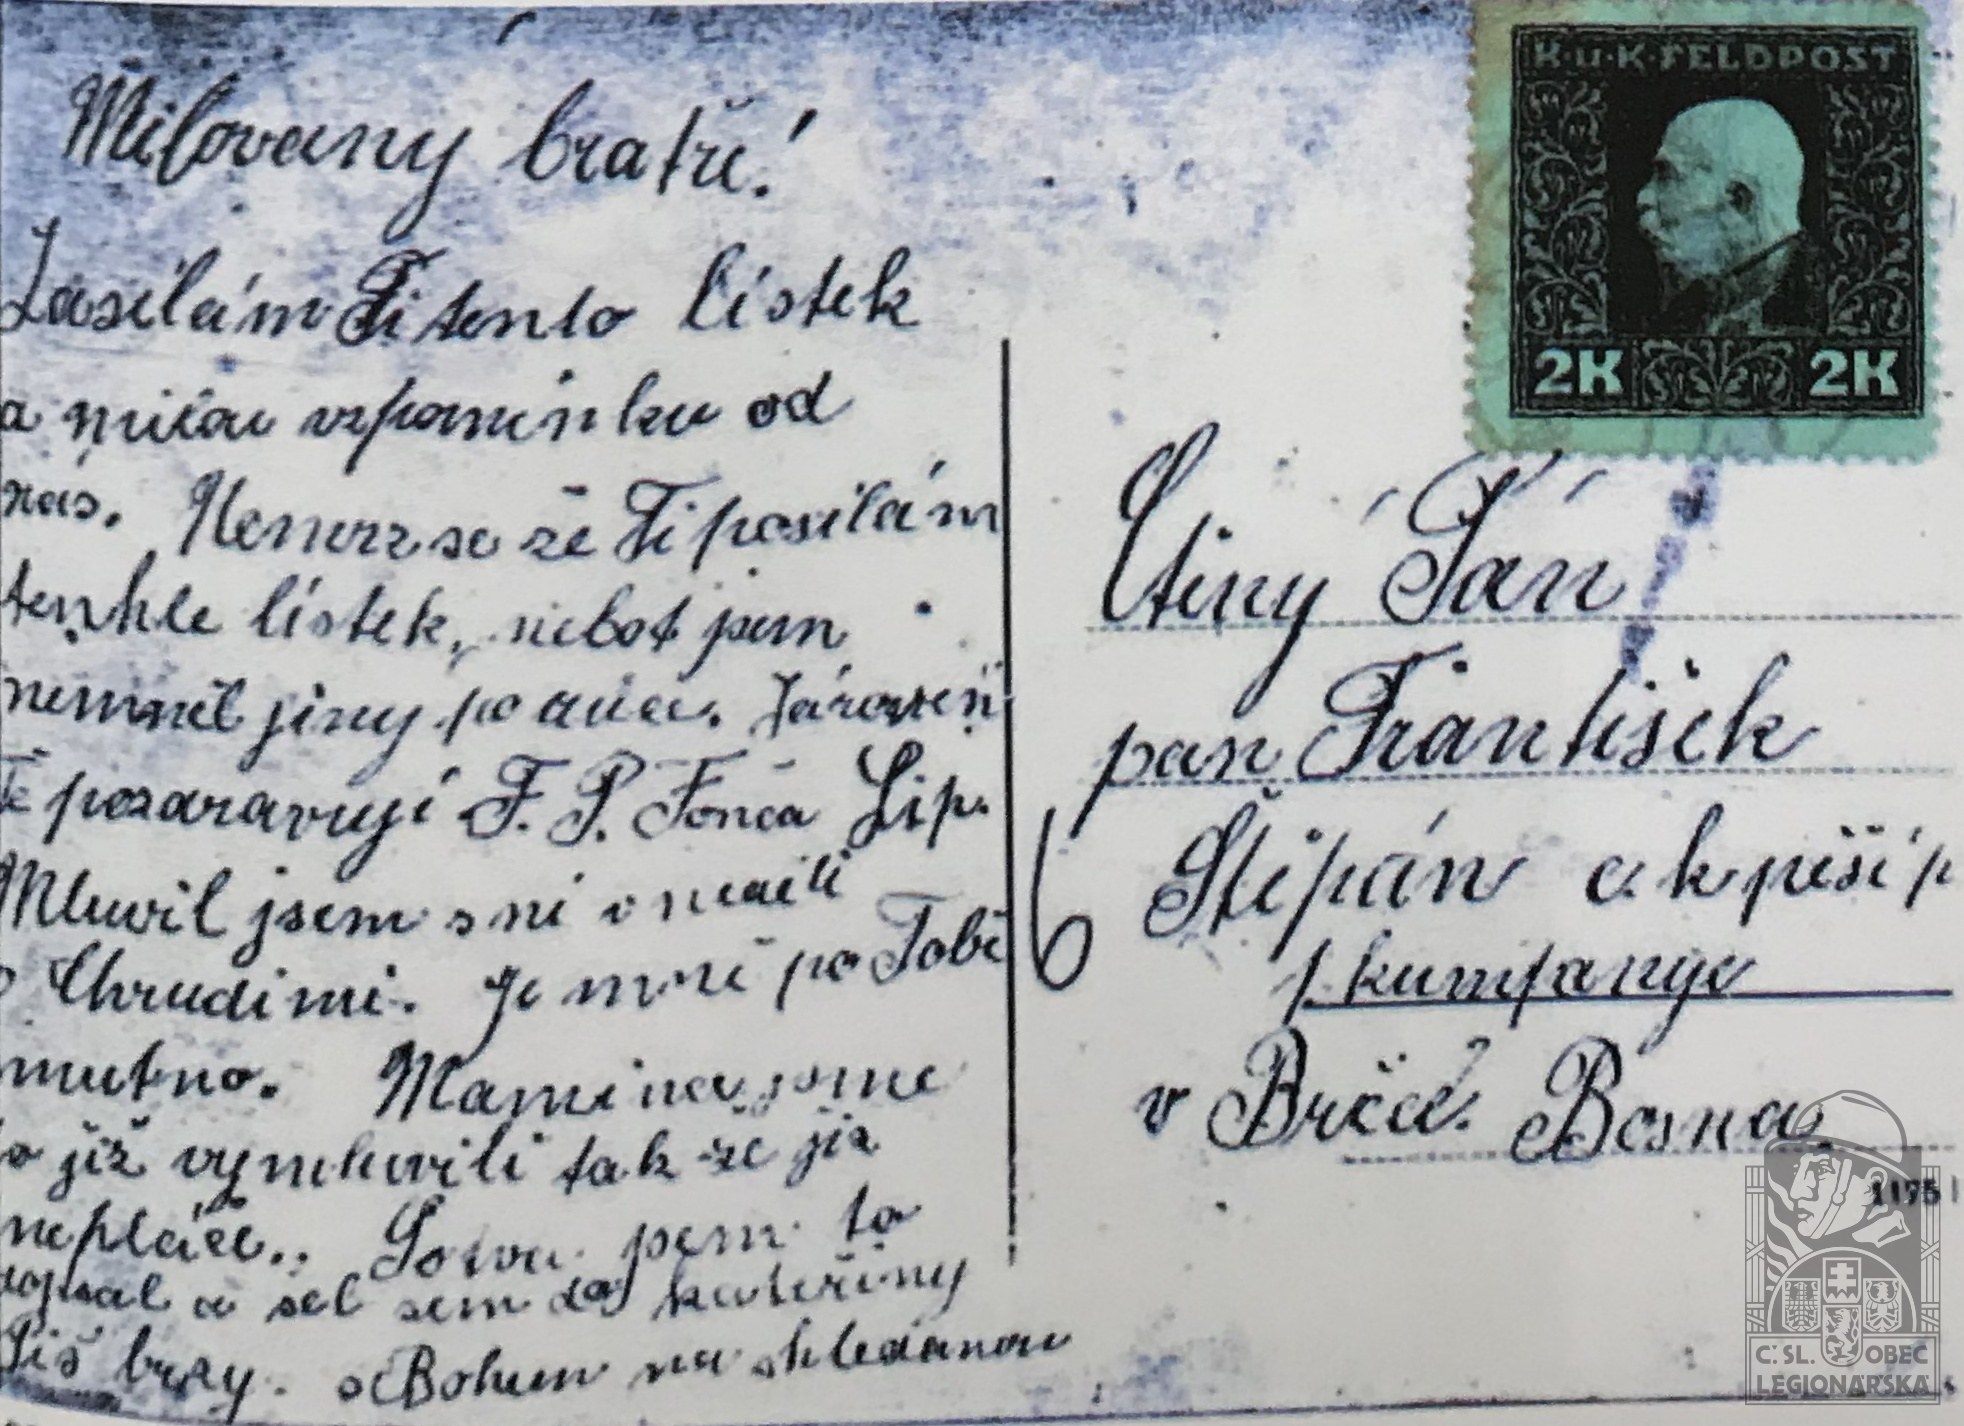 Milovaný bratře!
Zasílám Ti tento lístek
a milou vzpomínku od
nás. Nemrz se že Ti posílám
tenhle lístek, neboť jsem
neměl jiný po ruce. Zároveň
Tě pozdravují F. P. Fonča Lip.
Mluvil jsem s ní v neděli
v Chrudimi. Je mně po Tobě
smutno. Maminou jsme
to již vymluvili tak že již
nepláče. Sotva jsem to
dopsal a šel sem do Kateřiny
Piš brzy. sBohem na shledanou
K.u.K.FELDPOST
2K 2K
Ctěný Pán
pan František
Štěpán c. k pěší p
6 p. kumpanye
v Brčce. Bosna
1175
Č. SL. OBEC
LEGIONÁŘSKÁ